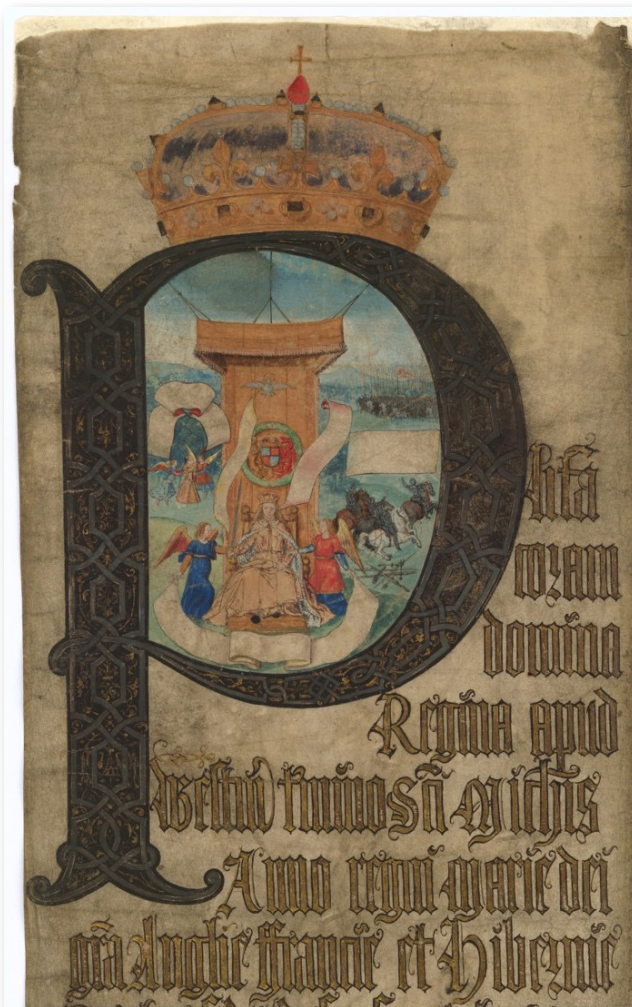 P
lita
coram
domina
Regina apud
Westm termino Sci Michis
Anno regni Marie dei
gra Anglie ffrancie et Hibernie